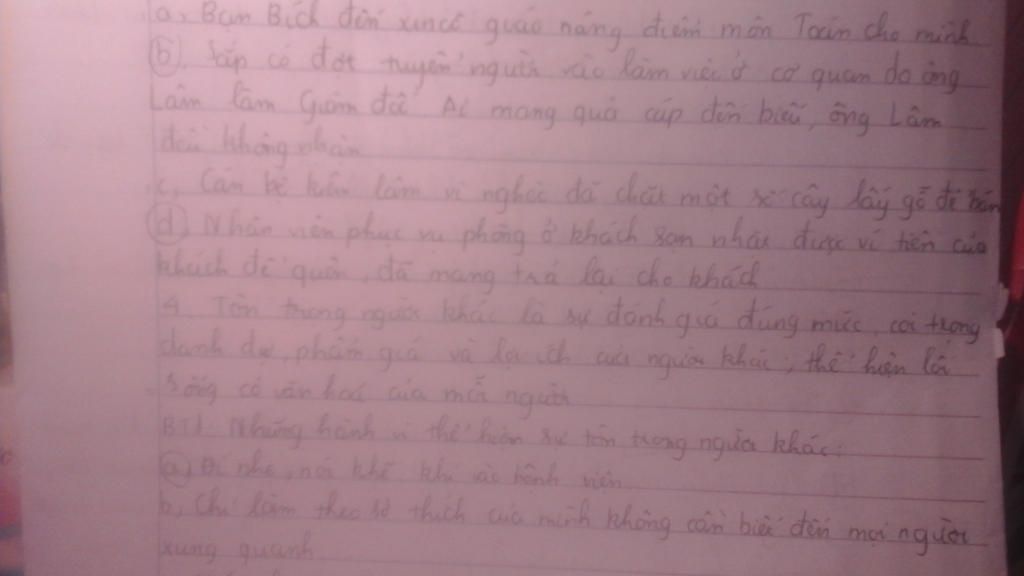 a, Bạn Bích đến xin cô giáo nâng điểm môn Toán cho mình
b, Sắp có đợt tuyển người vào làm việc ở cơ quan do ông
Lâm làm Giám đốc. Ai mang quà cáp đến biếu, ông Lâm
đều không nhận
c, Cán bộ kiểm lâm vì nghèo đã chặt một số cây lấy gỗ để bán
d, Nhân viên phục vụ phòng ở khách sạn nhặt được ví tiền của
khách để quên, đã mang trả lại cho khách
4. Tôn trọng người khác là sự đánh giá đúng mức, coi trọng
danh dự, phẩm giá và lợi ích của người khác; thể hiện lối
sống có văn hoá của mỗi người
BT1. Những hành vi thể hiện sự tôn trọng người khác:
a, Đi nhẹ, nói khẽ khi vào bệnh viện
b, Chỉ làm theo sở thích của mình không cần biết đến mọi người
xung quanh